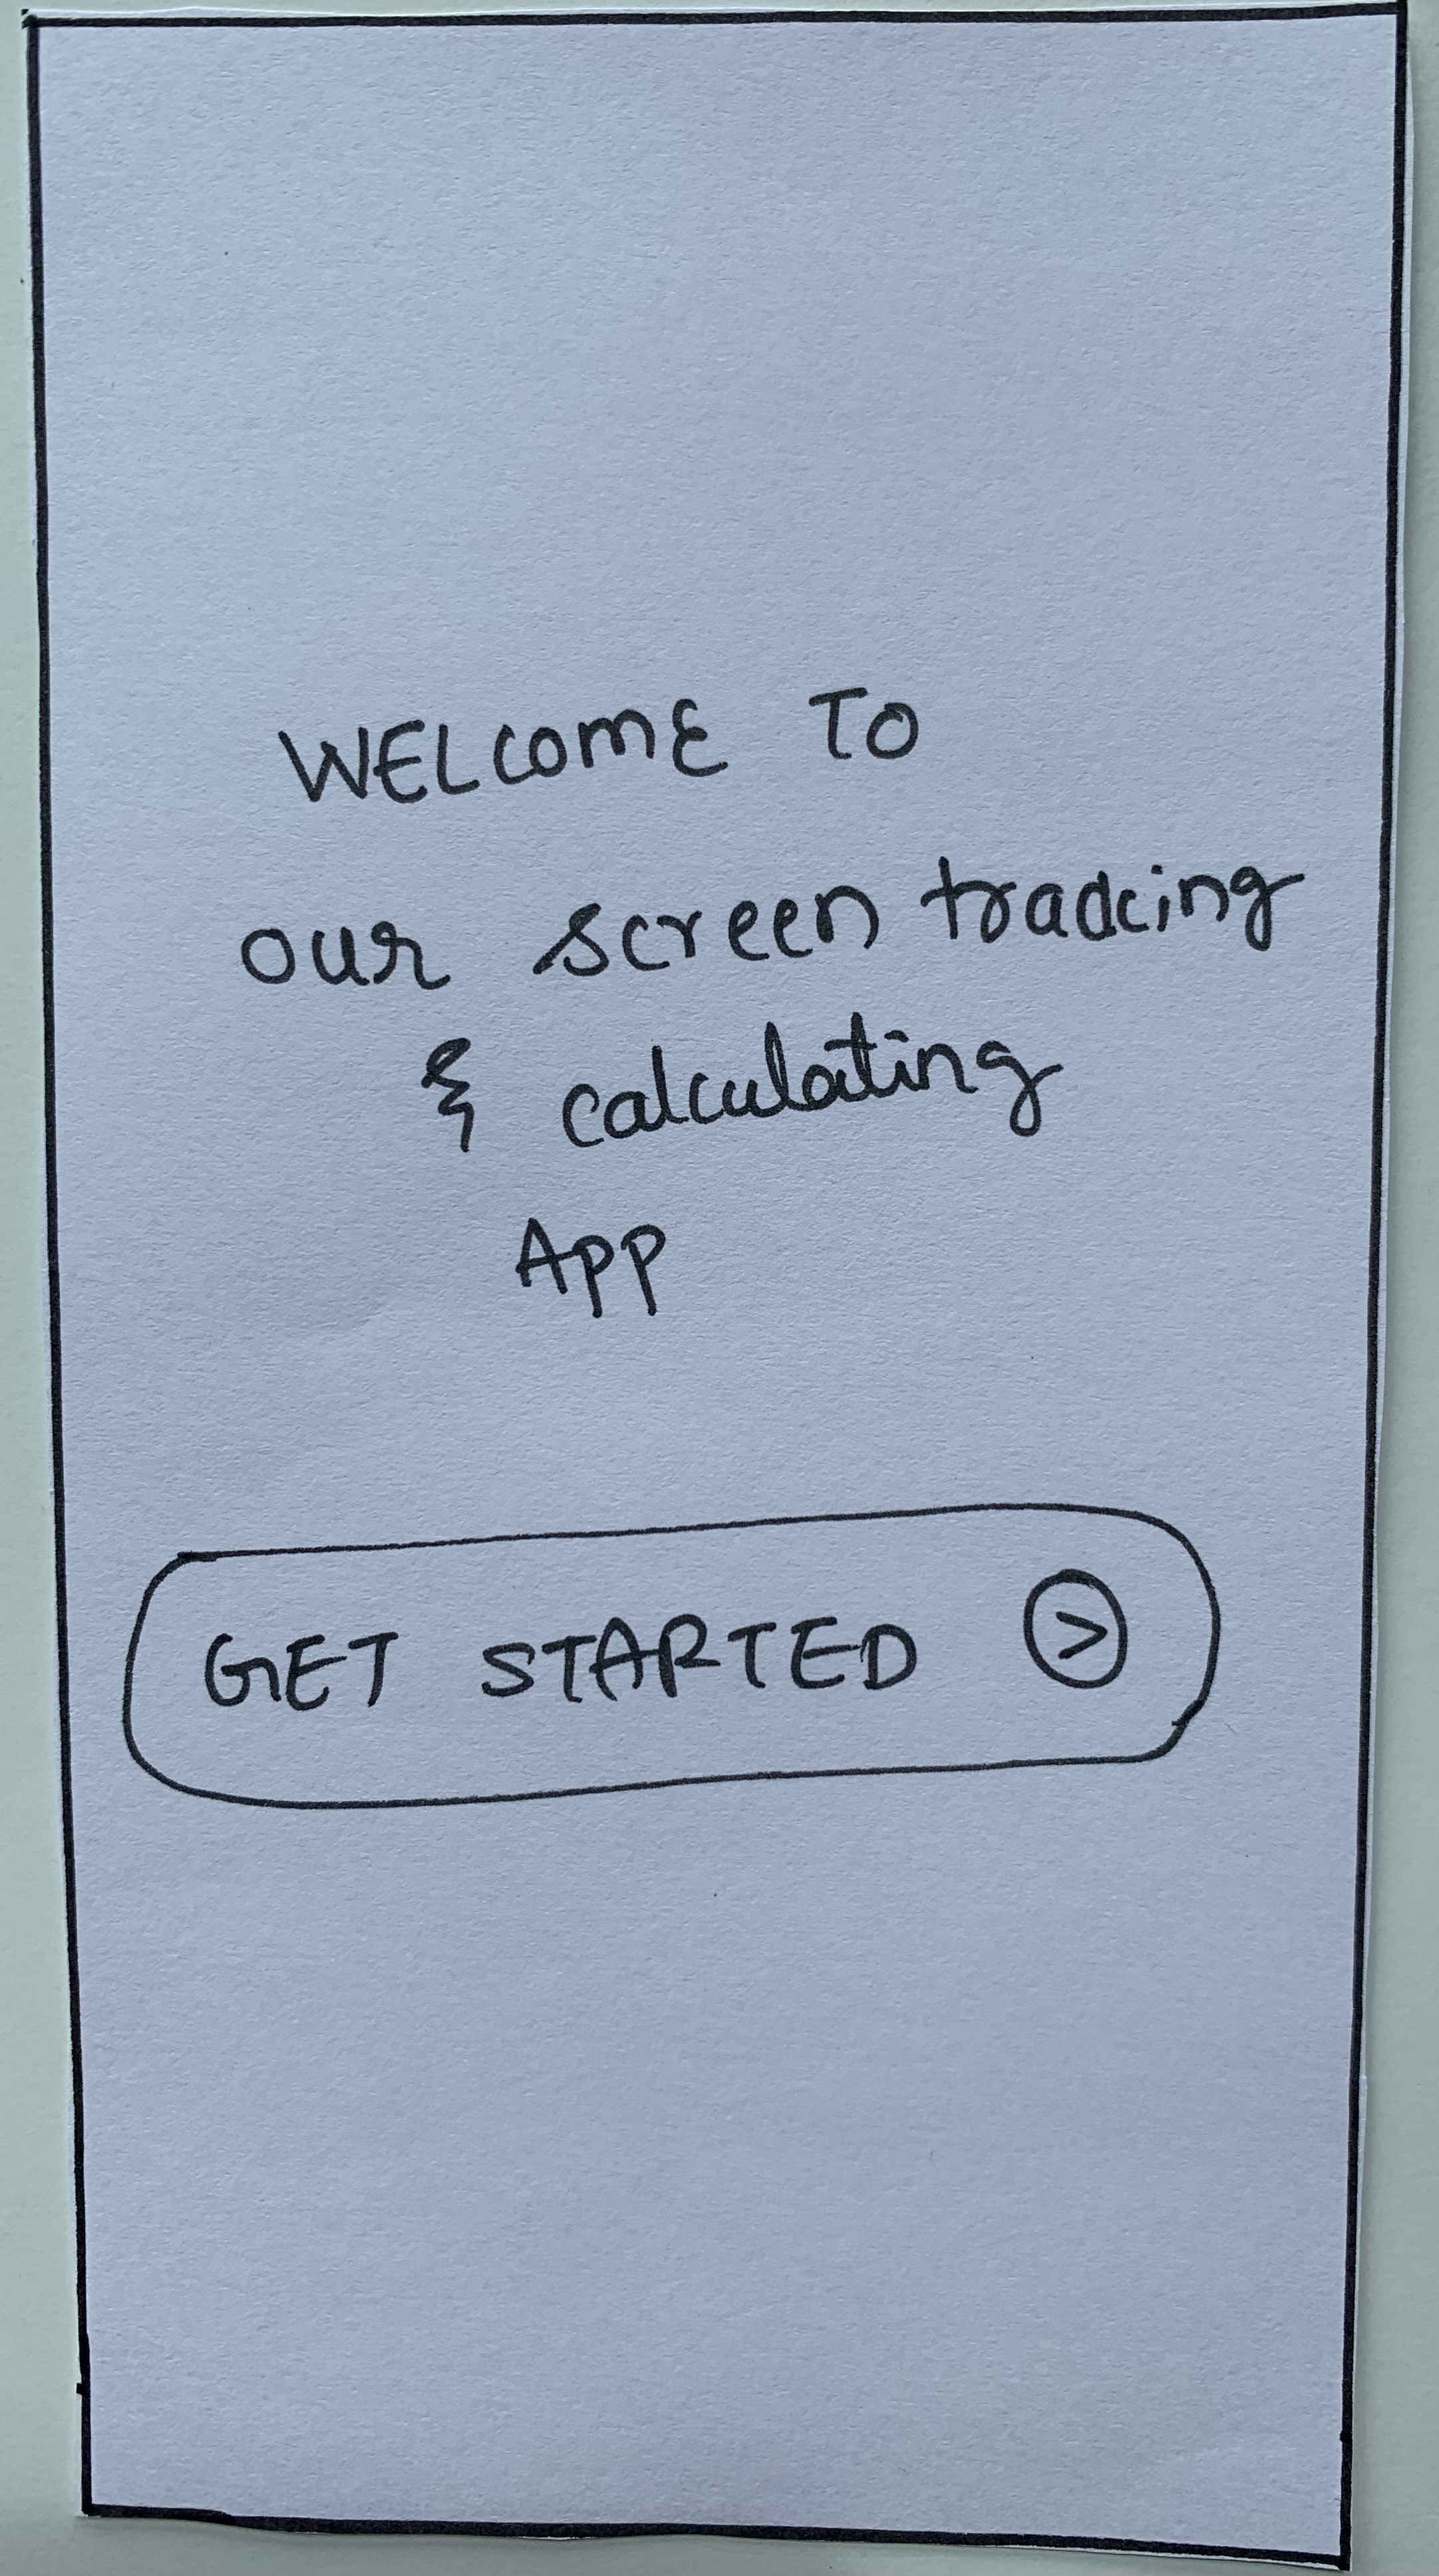 WELCOME TO
our screen tracking
& calculating
App
GET STARTED >